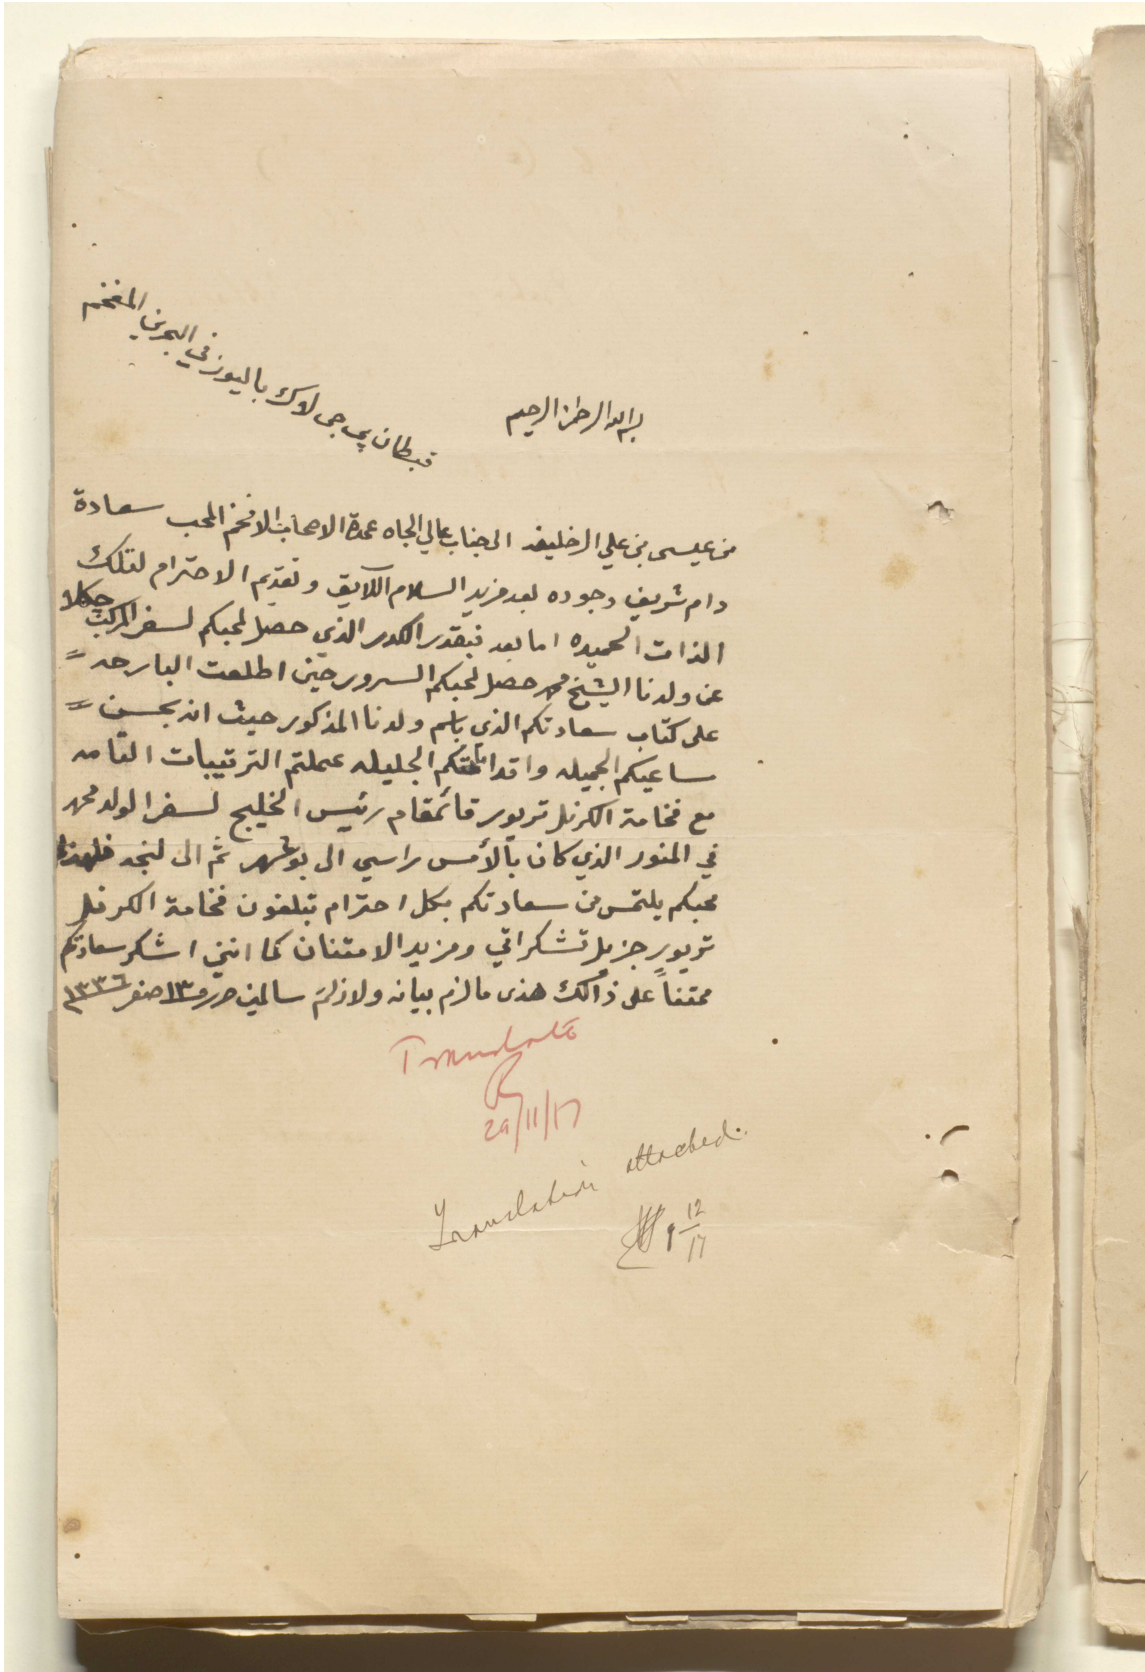 بسم الله الرحمن الرحيم
من عيسى بن علي ال خليفه الى جناب عالي الجاه عمدة الاصحاب الافخم المحب سعادة
قبطان پي جي لوك باليوز في البحرين المفخم
دام شريف وجوده بعد مزيد السلام اللايق وتقديم الاحترام لتلك
الذات الحميده اما بعد فبقدر الكدر الذي حصل لمحبكم لسفر المركب
عن ولدنا الشيخ محمد حصل لمحبكم السرور حين اطلعت البارحه =
على كتاب سعادتكم الذي باسم ولدنا المذكور حيث انه بحسن =
مساعيكم الجميله واقداماتكم الجليله عملتم الترتيبات التامه
مع فخامة الكرنل تريور قائمقام رئيس الخليج لسفر الولد محمد
في المنور الذي كان بالأمس راسي الى بوشهر ثم الى لنجه فلهذا
محبكم يلتمس من سعادتكم بكل احترام تبلغون فخامة الكرنل
تريور جزيل تشكراتي ومزيد الامتنان كما انني اشكر سعادتكم
ممتناً على ذالك هذى مالزم بيانه ولازلتم سالمين حرر ١٣ صفر ١٣٣٦
Translate
29/11/17
Translation attached.
1 12/17